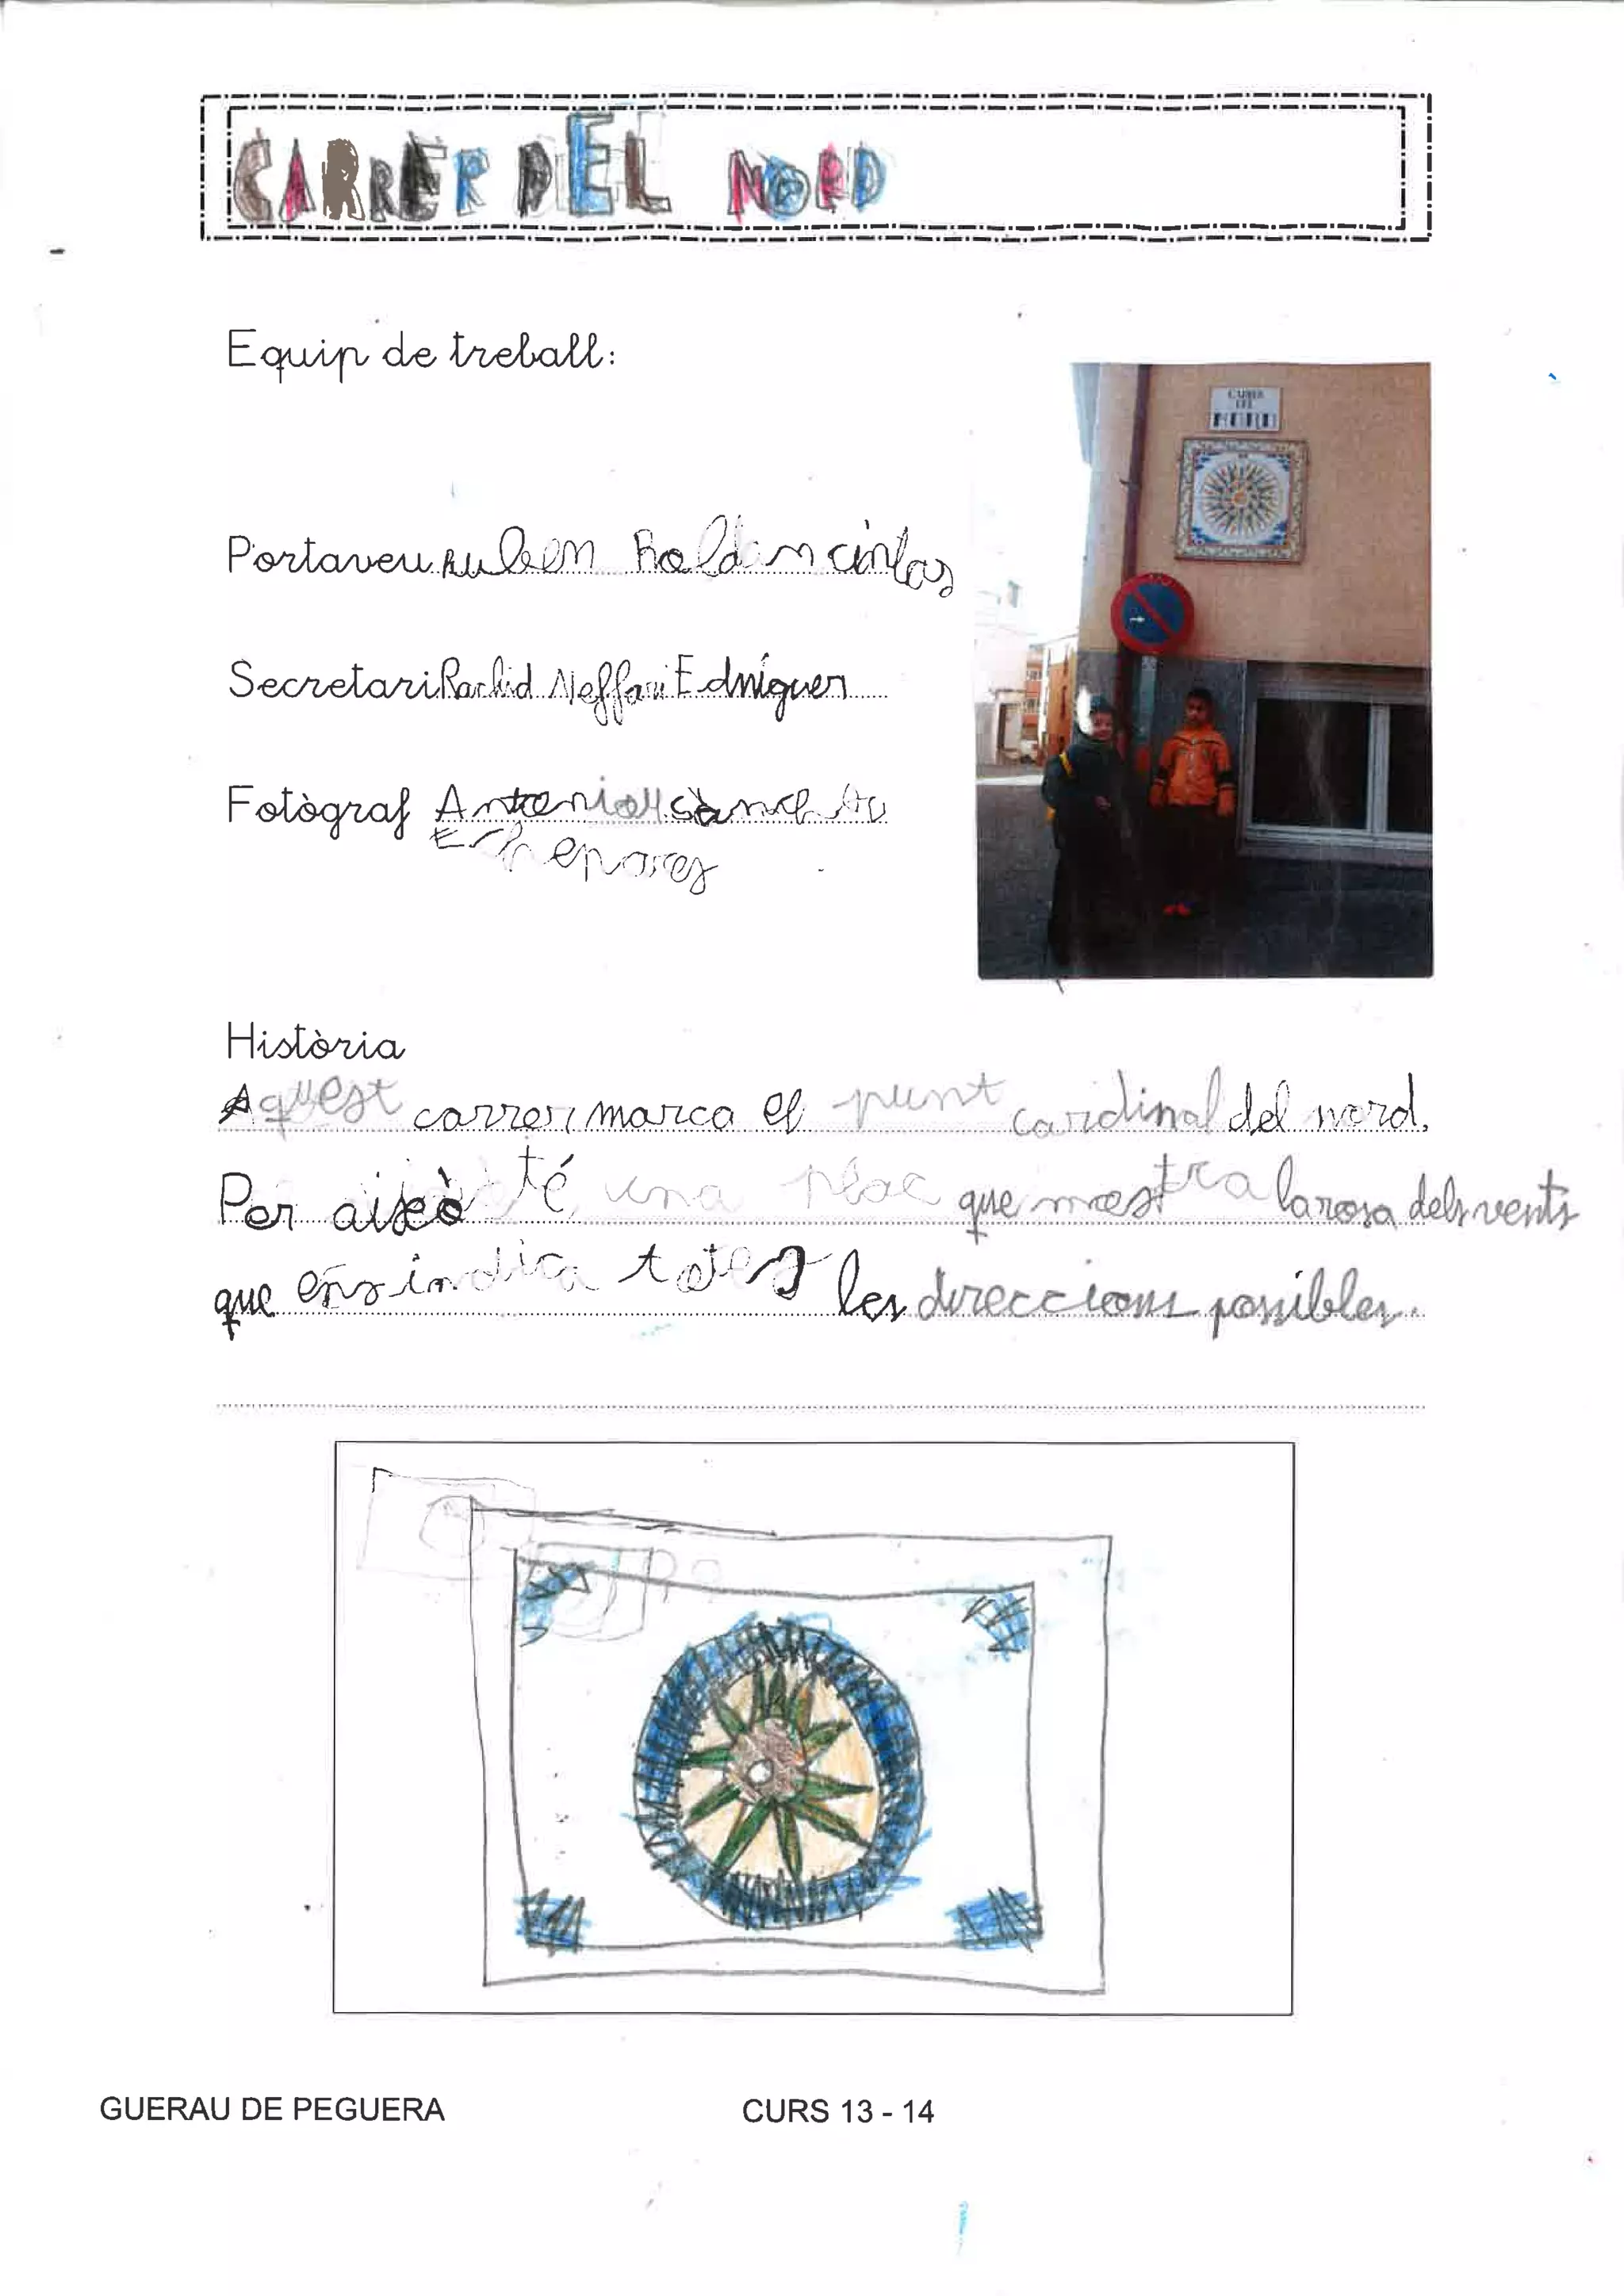 CARRER DEL NORD
Equip de treball:
CARRER
DEL
NORD
Portaveu Ruben Roldan cintas
Secretari Rachid Neffari Edniguer
Fotògraf Antonio
Història
Aquest carrer marca el punt cardinal del nord.
Per això té una plac que mostra la rosa dels vents
que ens indica totes les direccions possibles.
GUERAU DE PEGUERA CURS 13 - 14